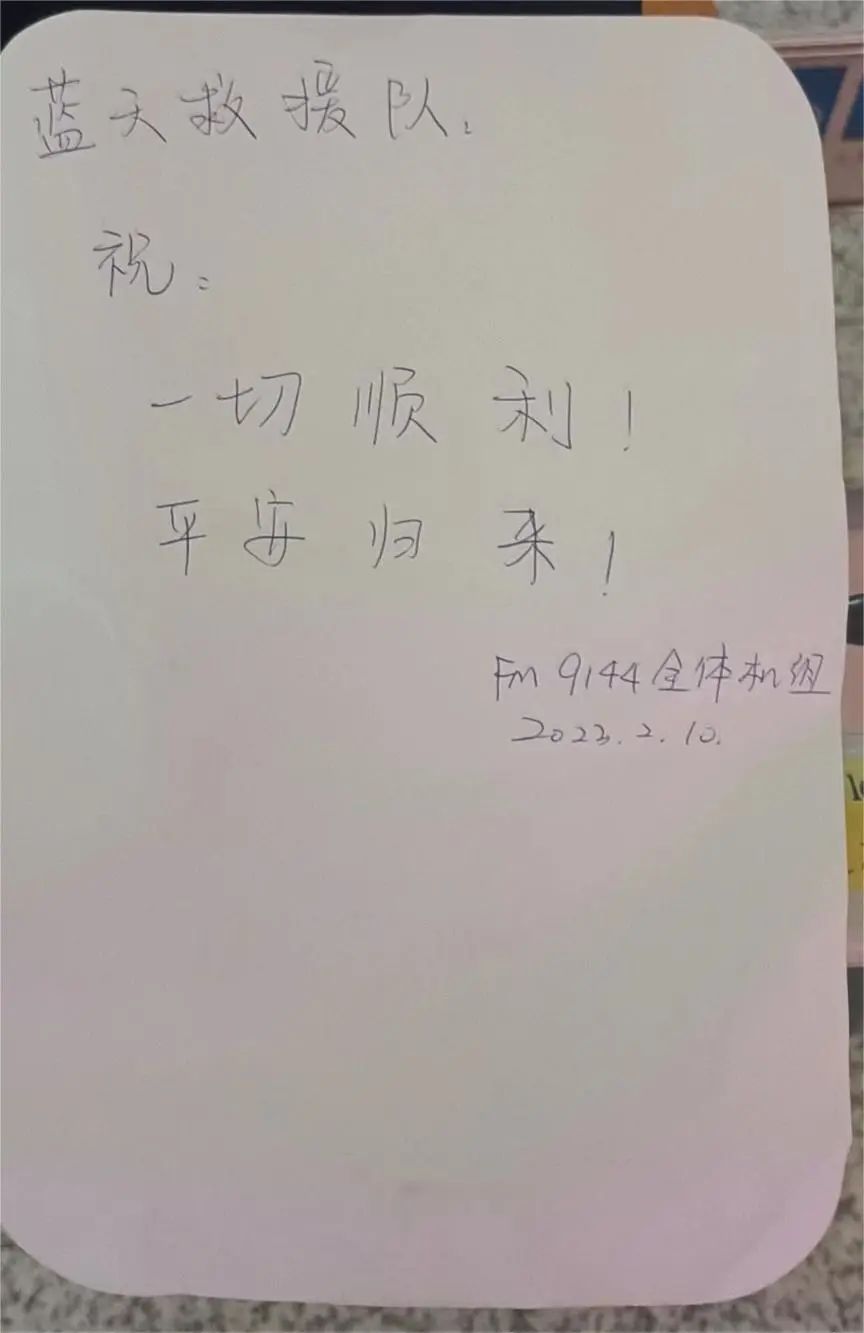 蓝天救援队：
祝：
一切顺利！
平安归来！
Fm 9144全体机组
2023.2.10.